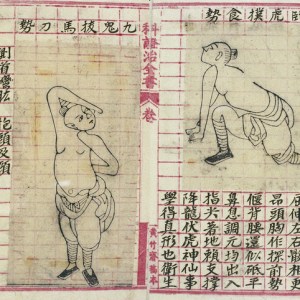 虎撲食勢
屈伸左右骽相更
昂頭胸作探前勢
偃背腰還似砥平
鼻息調元均出入
指尖着地賴支撐
降龍伏虎神仙事
學得真形也衛生
科證治全書
卷
黃竹齋稿本
九鬼拔馬刀勢
側首彎肱 抱頭及頸